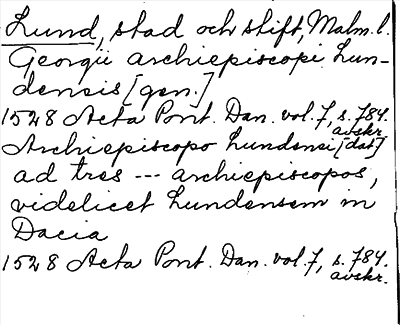 Lund, stad och stift, Malm. l.
Georgii archiepiscopi Lun-
densis [gen.]
1528 Acta Pont. Dan. vol. 7, s. 784.
avskr.
Archiepiscopo Lundensi [dat]
ad tres --- archiepiscopos,
videlicet Lundensem in
Dacia
1528 Acta Pont. Dan. vol. 7, s. 784.
avskr.